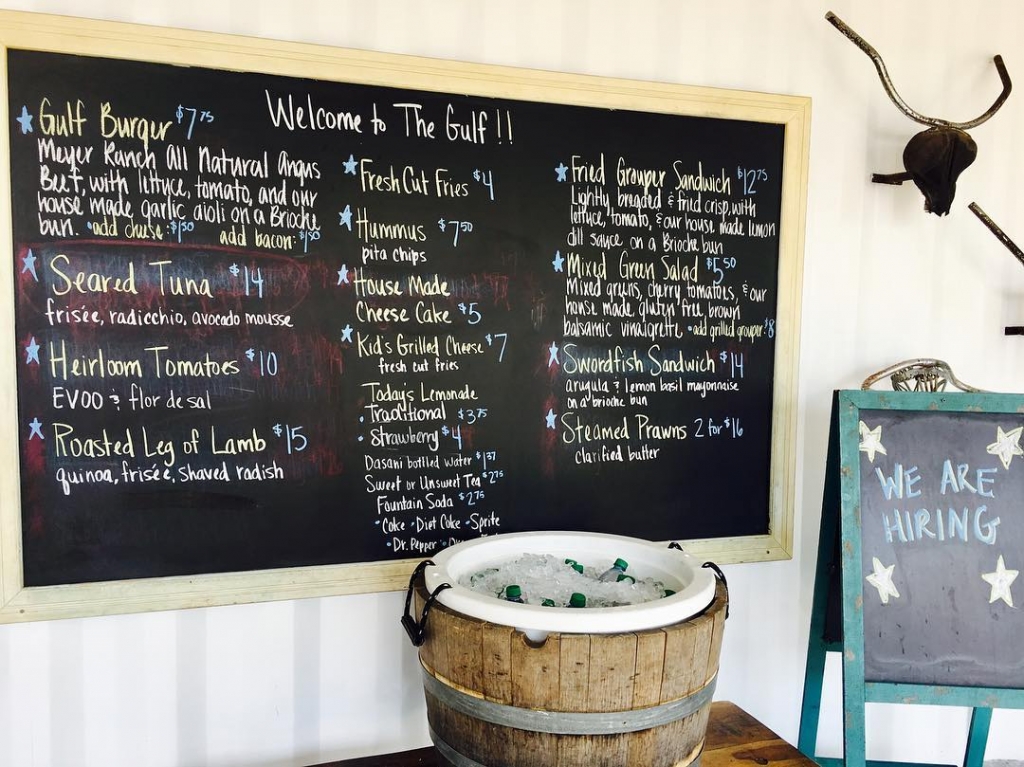 Welcome to The Gulf!!
Gulf Burger $7.75
Meyer Ranch All Natural Angus
Beef, with lettuce, tomato, and our
house made garlic aioli on a Brioche
bun. • add cheese: $1.50 add bacon: $1.50
Seared Tuna $14
frisée, radicchio, avocado mousse
Heirloom Tomatoes $10
EVOO & flor de sal
Roasted Leg of Lamb $15
quinoa, frisée, shaved radish
Fresh Cut Fries $4
Hummus $7.50
pita chips
House Made
Cheese Cake $5
Kid's Grilled Cheese $7
fresh cut fries
Today's Lemonade
• Traditional $3.75
• Strawberry $4
Dasani bottled water $1.37
Sweet or Unsweet Tea $2.75
Fountain Soda $2.75
• Coke • Diet Coke • Sprite
• Dr. Pepper •
Fried Grouper Sandwich $12.75
Lightly breaded & fried crisp, with
lettuce, tomato, & our house made lemon
dill sauce on a Brioche bun
Mixed Green Salad $5.50
Mixed greens, cherry tomatoes, & our
house made, gluten free, brown
balsamic vinaigrette. • add grilled grouper: $8
Swordfish Sandwich $14
arugula & lemon basil mayonnaise
on a brioche bun
Steamed Prawns 2 for $16
clarified butter
WE ARE
HIRING